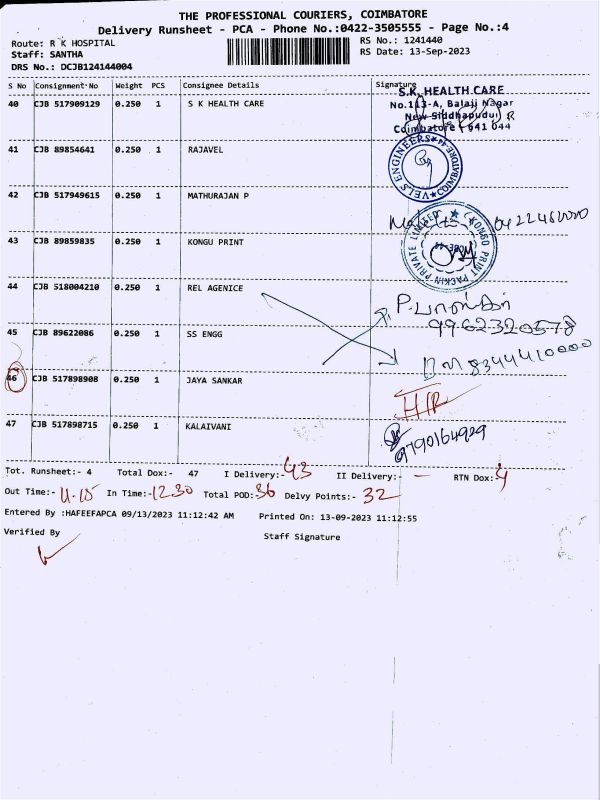 THE PROFESSIONAL COURIERS, COIMBATORE
Delivery Runsheet - PCA - Phone No.:0422-3505555 - Page No.:4
Route: R K HOSPITAL
Staff: SANTHA
DRS No.: DCJB124144004
RS No.: 1241440
RS Date: 13-Sep-2023
S No Consignment No Weight PCS Consignee Details Signature
40 CJB 517909129 0.250 1 S K HEALTH CARE
S.K. HEALTH CARE
No.113-A, Balaji Nagar
New Siddhapudur
Coimbatore - 641 044
41 CJB 89854641 0.250 1 RAJAVEL
VELS ENGINEERS ★ COIMBATORE-44 ★
42 CJB 517949615 0.250 1 MATHURAJAN P
43 CJB 89859835 0.250 1 KONGU PRINT
KONGO PRINT PACKIN PRIVATE LIMITED ★
44 CJB 518004210 0.250 1 REL AGENICE
9962320578
45 CJB 89622086 0.250 1 SS ENGG
8344410000
46 CJB 517898908 0.250 1 JAYA SANKAR
47 CJB 517898715 0.250 1 KALAIVANI
9790164929
Tot. Runsheet:- 4 Total Dox:- 47 I Delivery:- 43 II Delivery:- — RTN Dox:- 4
Out Time:- 11.15 In Time:- 12.30 Total POD:- 36 Delvy Points:- 32
Entered By :HAFEEFAPCA 09/13/2023 11:12:42 AM Printed On: 13-09-2023 11:12:55
Verified By Staff Signature